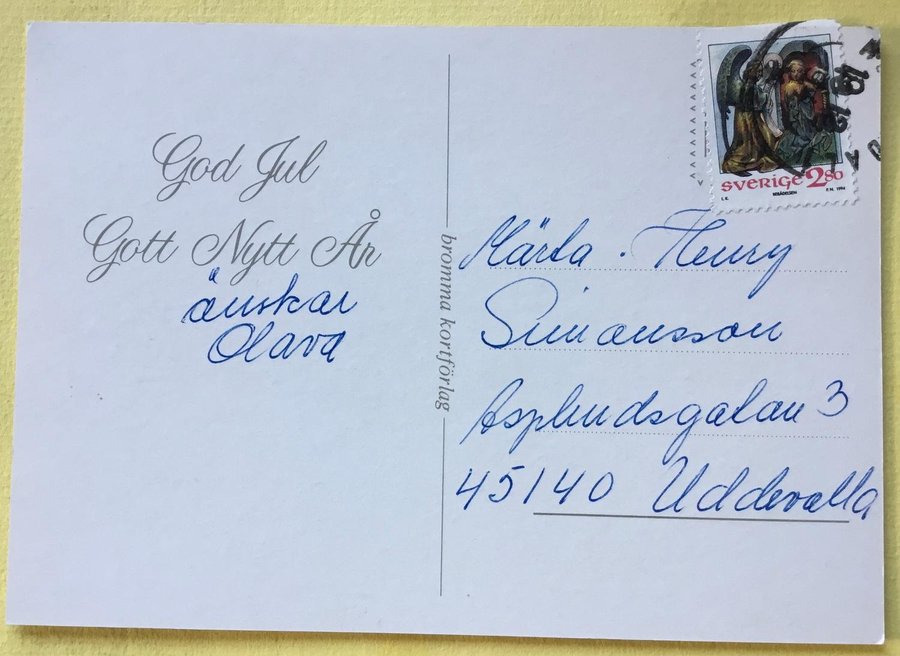 God Jul
Gott Nytt År
önskar
Olava
bromma kortförlag
SVERIGE 2.80
BEBÅDELSEN
1994
Märta. Henry
Simonsson
Asplundsgatan 3
45140 Uddevalla